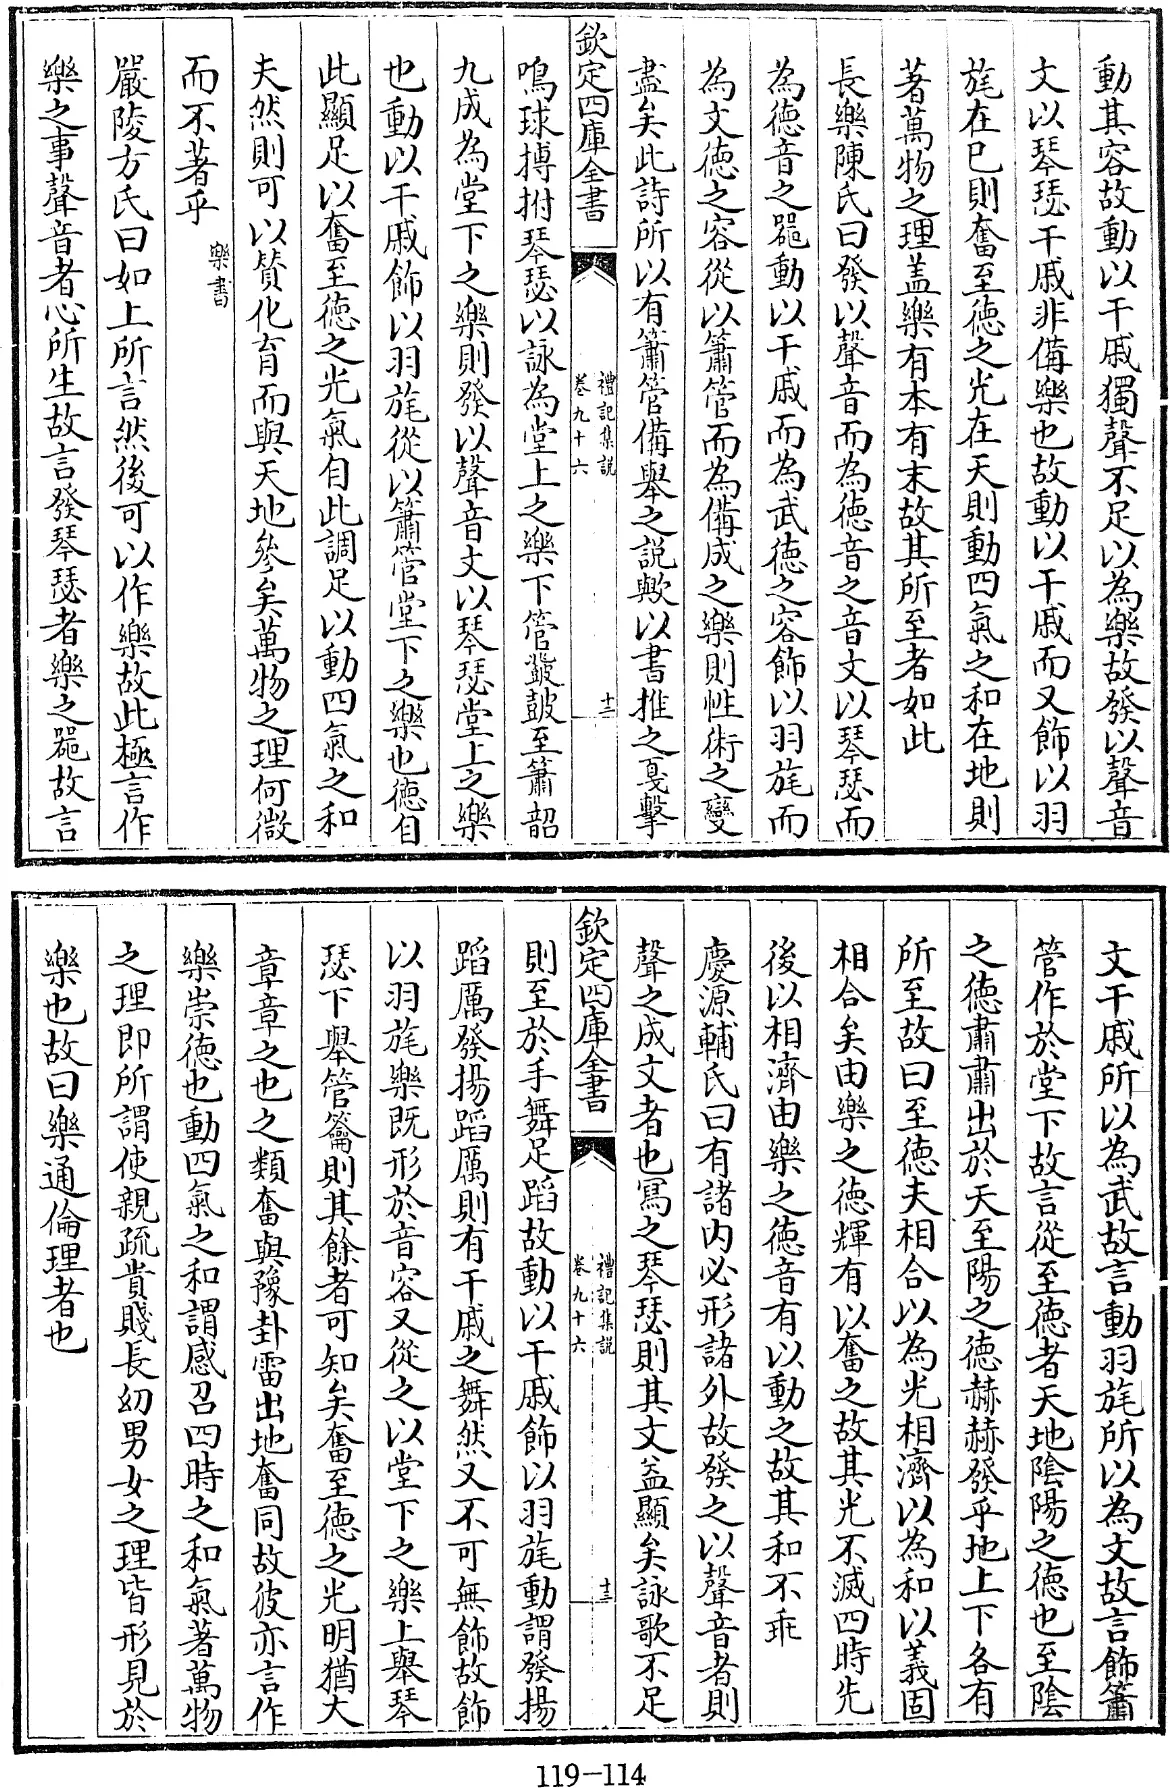 動其容故動以干戚獨聲不足以為樂故發以聲音
文以琴瑟干戚非備樂也故動以干戚而又飾以羽
旄在已則奮至徳之光在天則動四氣之和在地則
著萬物之理葢樂有本有末故其所至者如此
長樂陳氏曰發以聲音而為徳音之音文以琴瑟而
為徳音之器動以干戚而為武徳之容飾以羽旄而
為文徳之容從以簫管而為備成之樂則性術之變
盡矣此詩所以有簫管備舉之説歟以書推之戛擊
欽定四庫全書
禮記集説
卷九十六
十三
鳴球搏拊琴瑟以詠為堂上之樂下管鼗鼓至簫韶
九成為堂下之樂則發以聲音文以琴瑟堂上之樂
也動以干戚飾以羽旄從以簫管堂下之樂也徳自
此顯足以奮至徳之光氣自此調足以動四氣之和
夫然則可以賛化育而與天地參矣萬物之理何微
而不著乎 樂書
嚴陵方氏曰如上所言然後可以作樂故此極言作
樂之事聲音者心所生故言發琴瑟者樂之器故言
文干戚所以為武故言動羽旄所以為文故言飾簫
管作於堂下故言從至徳者天地陰陽之徳也至陰
之徳肅肅出於天至陽之徳赫赫發乎地上下各有
所至故曰至徳夫相合以為光相濟以為和以義固
相合矣由樂之徳輝有以奮之故其光不滅四時先
後以相濟由樂之徳音有以動之故其和不乖
慶源輔氏曰有諸内必形諸外故發之以聲音者則
聲之成文者也寫之琴瑟則其文益顯矣詠歌不足
欽定四庫全書
禮記集説
卷九十六
十三
則至於手舞足蹈故動以干戚飾以羽旄動謂發揚
蹈厲發揚蹈厲則有干戚之舞然又不可無飾故飾
以羽旄樂既形於音容又從之以堂下之樂上舉琴
瑟下舉管籥則其餘者可知矣奮至徳之光明猶大
章章之也之類奮與豫卦雷出地奮同故彼亦言作
樂崇徳也動四氣之和謂感召四時之和氣著萬物
之理即所謂使親疏貴賤長幼男女之理皆形見於
樂也故曰樂通倫理者也
119-114